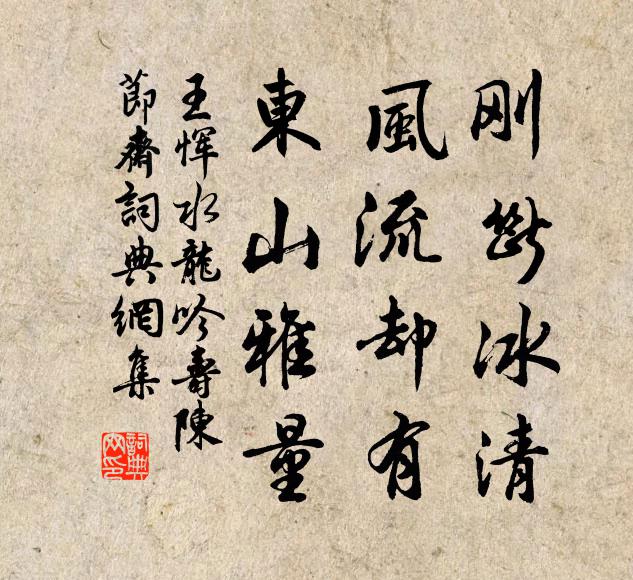 刚断冰清
風流却有
東山雅量
王惲水龍吟壽陳
節齋詞典網集
詞典网印